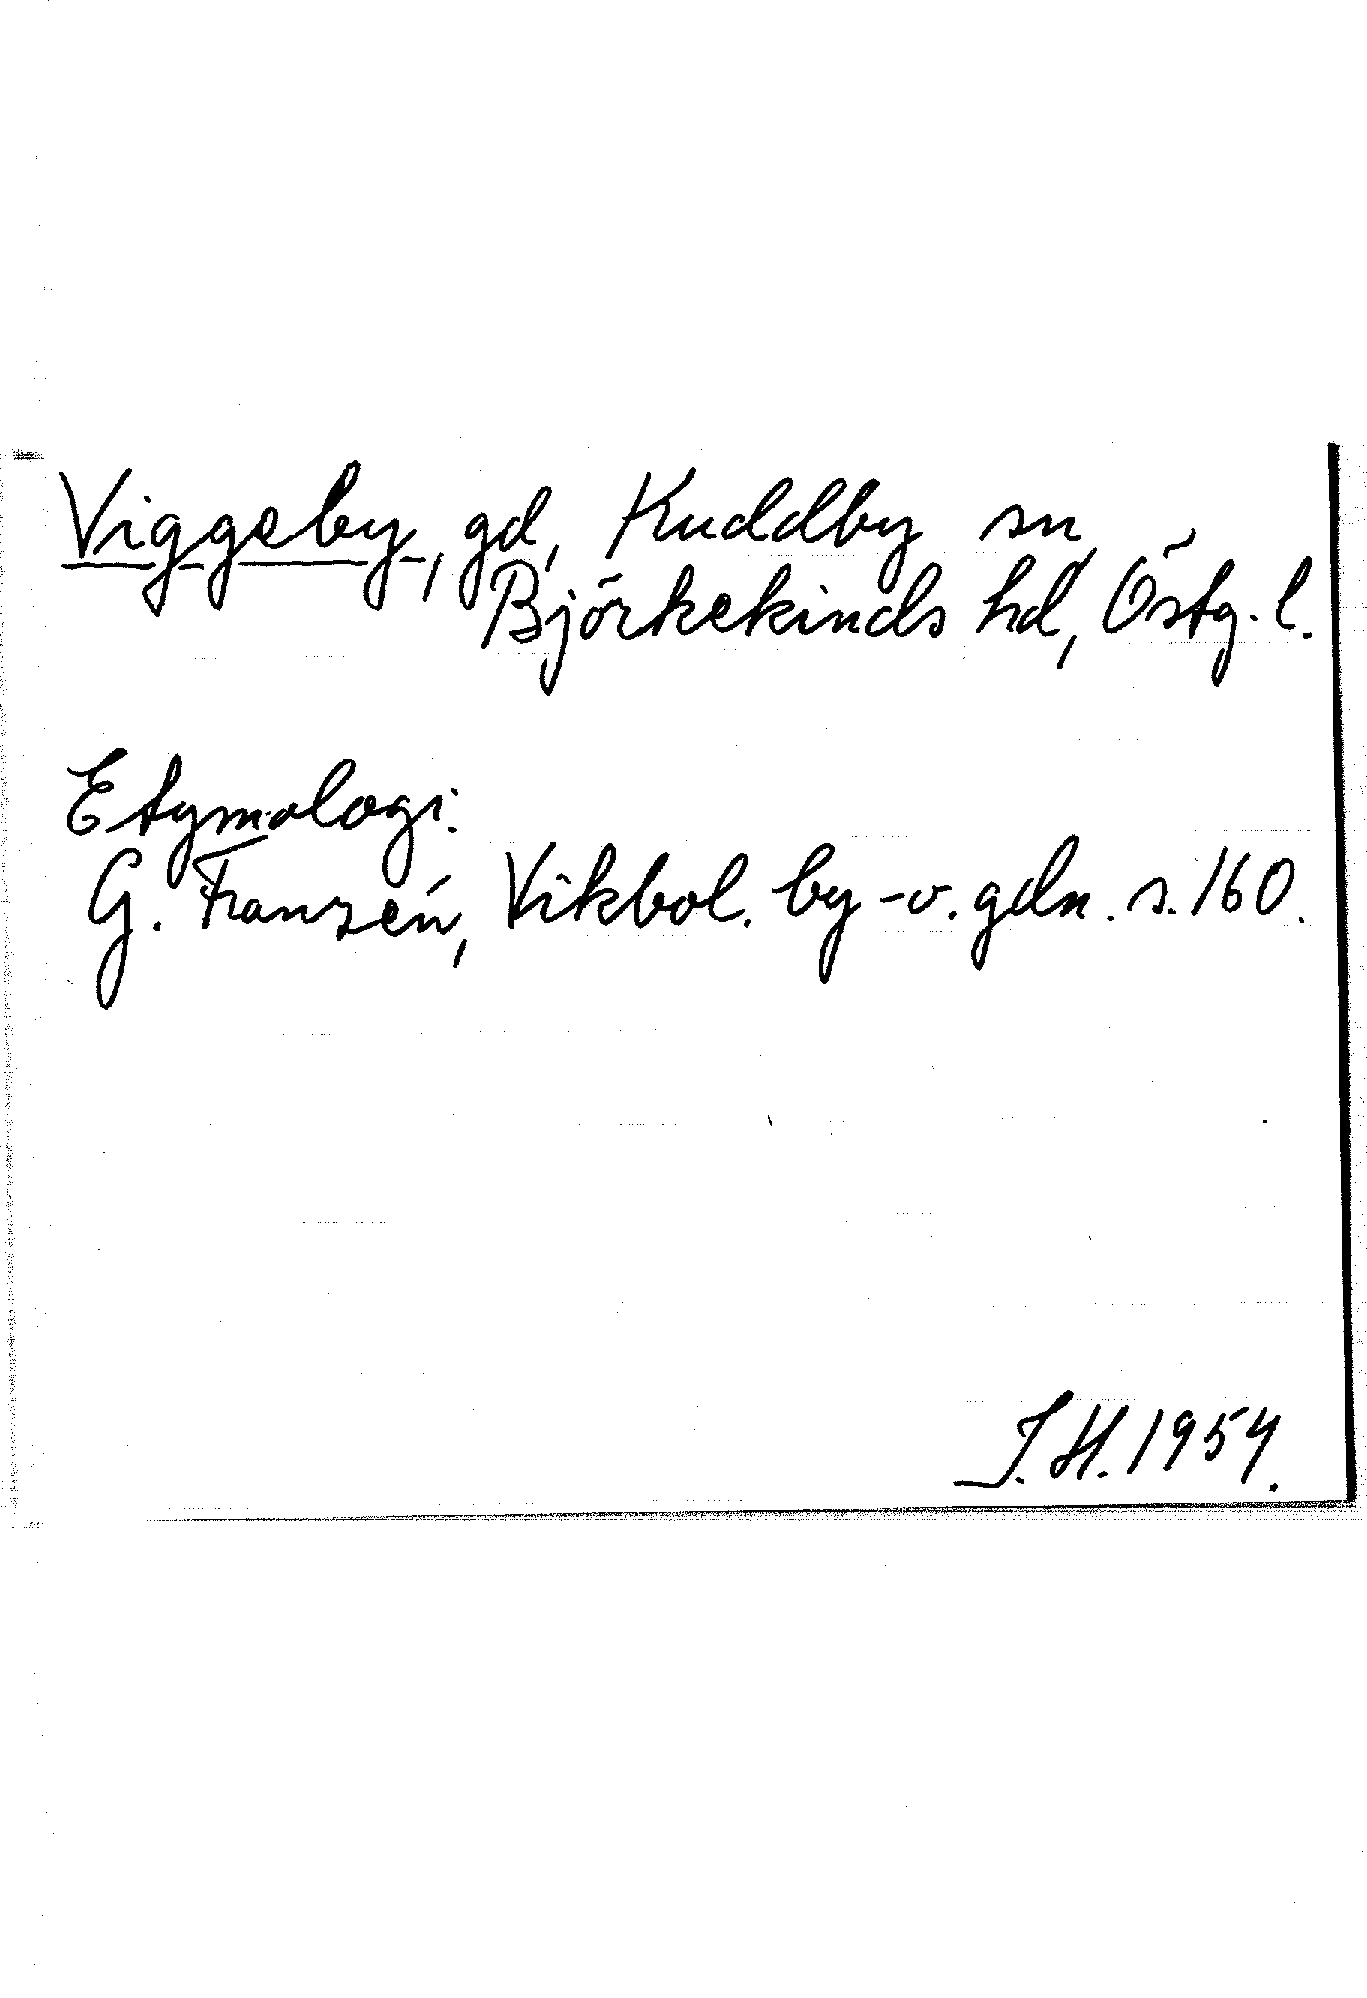 Viggeby, gd, Kuddby sn,
Björkekinds hd, Östg. l.
Etymologi.
G. Franzén, Vikbol. by -o. gdn. s. 160.
J. H. 1954.